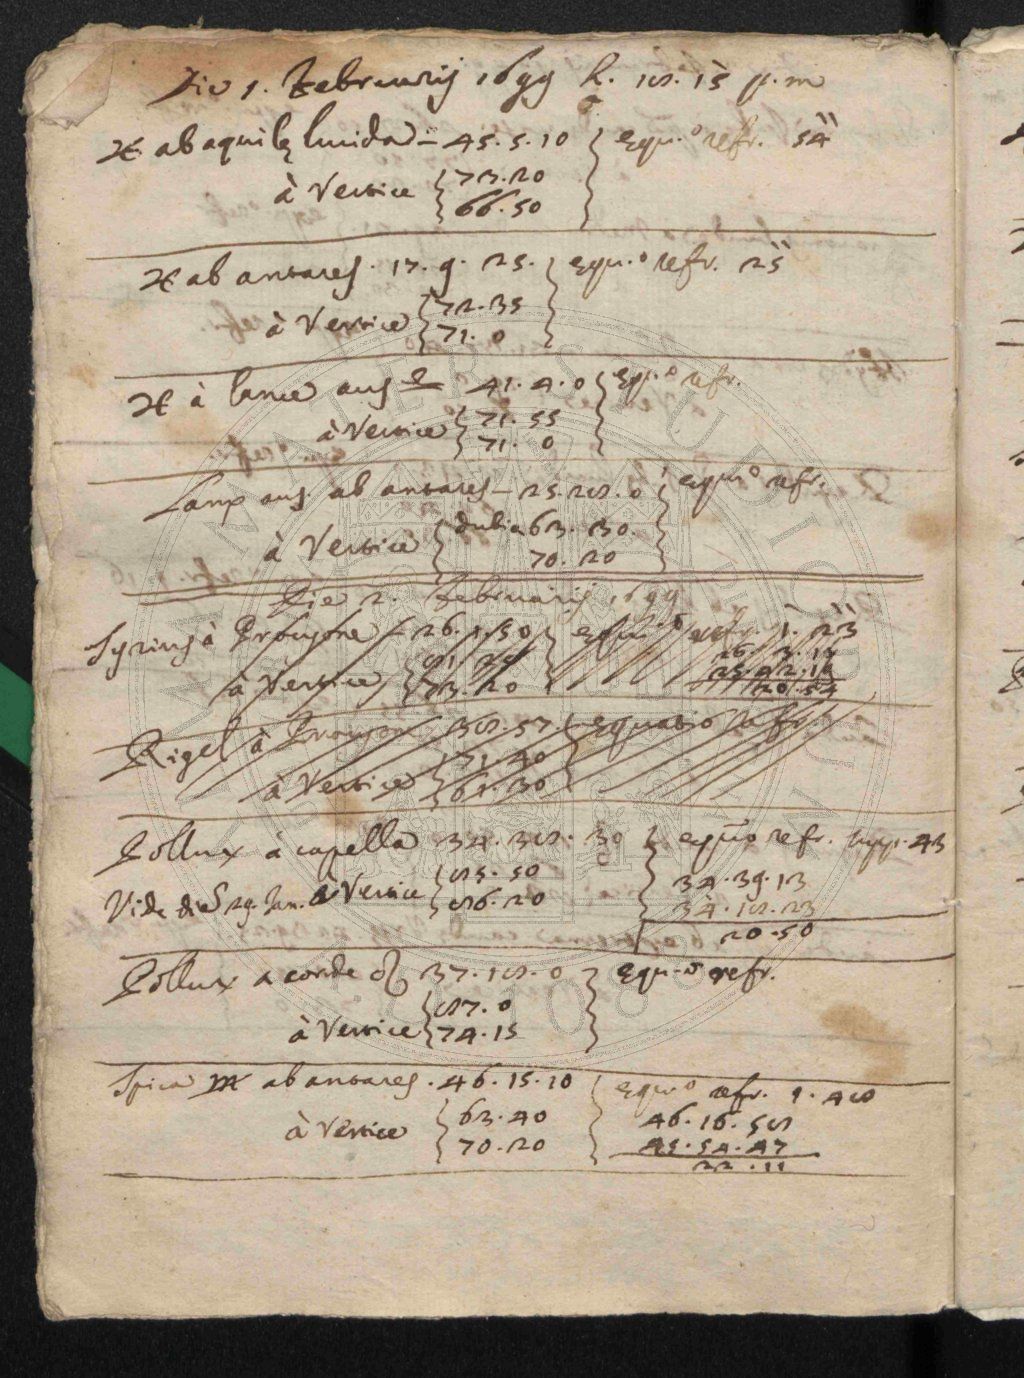 Die 1. Februarij 1699 h. 18. 15 p. m
♃ ab aquilę lucida – 45. 5. 10 } equ.º refr. 54''
à Vertice { 73. 20
66. 50
♃ ab antares. 17. 9. 25. } equ.º refr. 25''
à Vertice { 72. 35
71. 0
♃ à lance aus 41. 4. 0 } equ.º refr.
à Vertice { 71. 55
71. 0
Lanx aus. ab antares – 25. 28. 0 } equº refr.
à Vertice { dubia 63. 30.
70. 20
Die 2. Februarij 1699
Syrius à Procyone – 26. 1. 50 } equ.º refr. 1. 23''
26. 3. 13
à Vertice { 81. 20
73. 20
25. 42. 19
20. 54
Rigel à Procyon 38. 57. { equatio refr.
à Vertice { 71. 40
61. 30
Pollux à capella 34. 38. 30 } equº refr. 43
Vide die 29. Jan. à Vertice { 85. 50
86. 20
34. 39. 13
34. 18. 23
20. 50
Pollux a corde ♌ 37. 18. 0 } equ.º refr.
à Vertice { 87. 0
74. 15
Spica ♍ ab antares. 46. 15. 10 { equº refr. 1. 48
à Vertice { 63. 40
70. 20
46. 16. 58
45. 54. 47
22. 11